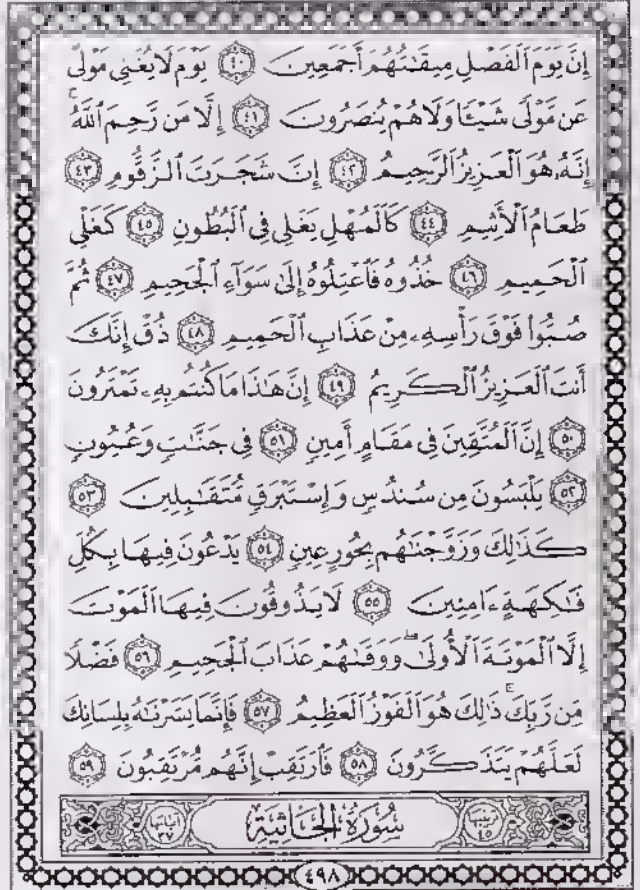 إِنَّ يَوْمَ الْفَصْلِ مِيقَاتُهُمْ أَجْمَعِينَ ٤٠ يَوْمَ لَا يُغْنِي مَوْلًى
عَن مَّوْلًى شَيْئًا وَلَا هُمْ يُنصَرُونَ ٤١ إِلَّا مَن رَّحِمَ اللَّهُ ۚ
إِنَّهُ هُوَ الْعَزِيزُ الرَّحِيمُ ٤٢ إِنَّ شَجَرَتَ الزَّقُّومِ ٤٣
طَعَامُ الْأَثِيمِ ٤٤ كَالْمُهْلِ يَغْلِي فِي الْبُطُونِ ٤٥ كَغَلْيِ
الْحَمِيمِ ٤٦ خُذُوهُ فَاعْتِلُوهُ إِلَىٰ سَوَاءِ الْجَحِيمِ ٤٧ ثُمَّ
صُبُّوا فَوْقَ رَأْسِهِ مِنْ عَذَابِ الْحَمِيمِ ٤٨ ذُقْ إِنَّكَ
أَنتَ الْعَزِيزُ الْكَرِيمُ ٤٩ إِنَّ هَٰذَا مَا كُنتُم بِهِ تَمْتَرُونَ
٥٠ إِنَّ الْمُتَّقِينَ فِي مَقَامٍ أَمِينٍ ٥١ فِي جَنَّاتٍ وَعُيُونٍ
٥٢ يَلْبَسُونَ مِن سُندُسٍ وَإِسْتَبْرَقٍ مُّتَقَابِلِينَ ٥٣
كَذَٰلِكَ وَزَوَّجْنَاهُم بِحُورٍ عِينٍ ٥٤ يَدْعُونَ فِيهَا بِكُلِّ
فَاكِهَةٍ آمِنِينَ ٥٥ لَا يَذُوقُونَ فِيهَا الْمَوْتَ
إِلَّا الْمَوْتَةَ الْأُولَىٰ ۖ وَوَقَاهُمْ عَذَابَ الْجَحِيمِ ٥٦ فَضْلًا
مِّن رَّبِّكَ ۚ ذَٰلِكَ هُوَ الْفَوْزُ الْعَظِيمُ ٥٧ فَإِنَّمَا يَسَّرْنَاهُ بِلِسَانِكَ
لَعَلَّهُمْ يَتَذَكَّرُونَ ٥٨ فَارْتَقِبْ إِنَّهُم مُّرْتَقِبُونَ ٥٩
ترتيبها ٤٥ سُورَةُ الْجَاثِيَةِ آياتها ٣٧
٤٩٨